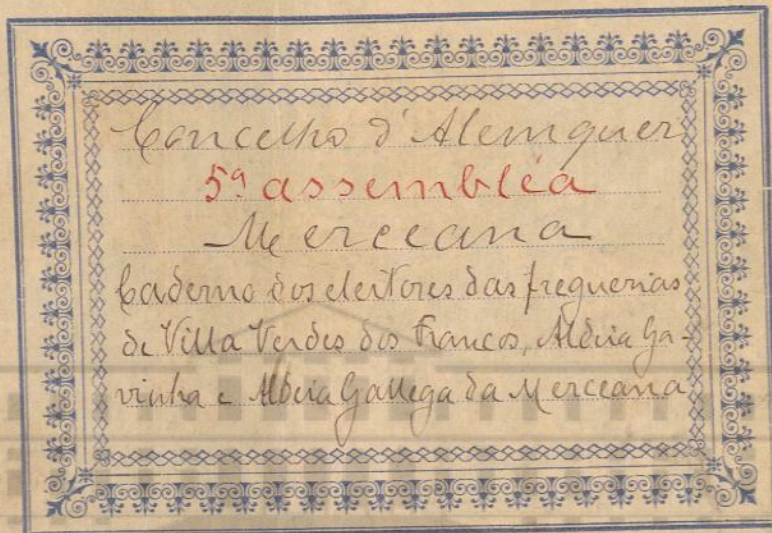 Concelho d'Alemquer
5ª assembléa
Merceana
Caderno dos eleitores das freguerias
de Villa Verdes dos Francos, Aldeia Ga-
vinha e Aldeia Gallega da Merceana